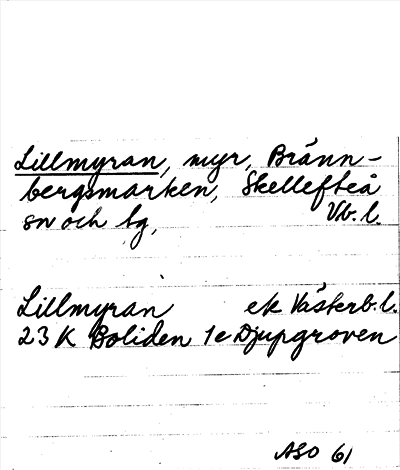 Lillmyran, myr, Bränn-
bergsmarken, Skellefteå
sn och tg, Vb. l.
Lillmyran ek Västerb. l.
23 K Boliden 1e Djupgroven
ASO 61